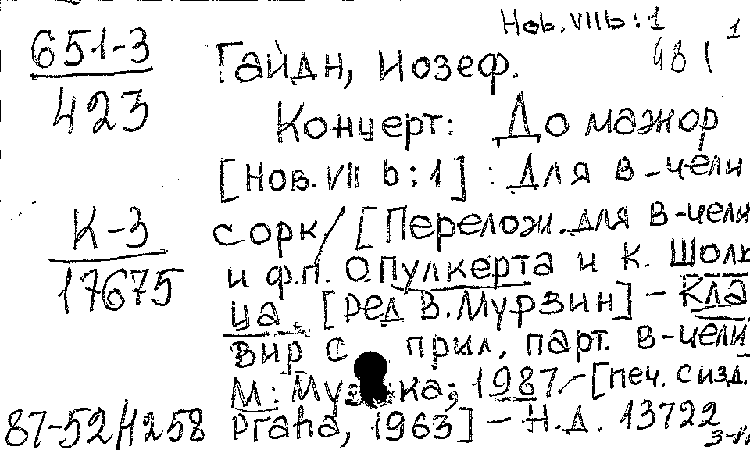 Hob. VIIb : 1
1
651-3
423
481
Гайдн, Иозеф.
Концерт: До мажор
[Hob. VII b : 1] : Для в-чели
К-3
17675
с орк / [Перелож. для в-чели
и ф.п. О. Пулкерта и К. Шольк
ца. [Ред В. Мурзин] – Кла
вир с прил. парт. в-чели,
М.: Музыка, 1987. – [печ. с изд.
87-52/1258
Praha, 1963] – Н.д. 13722